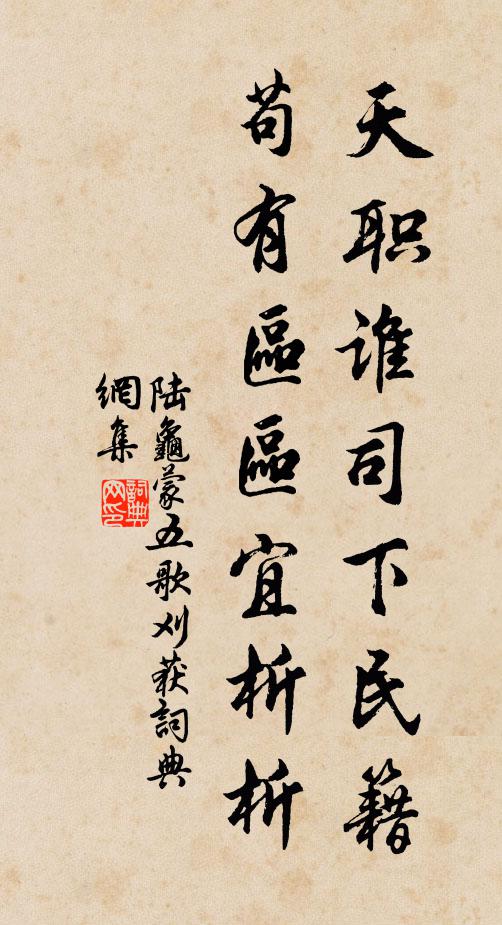 天职谁司下民籍
苟有區區宜析析
陆龜蒙五歌刈获詞典
網集
詞典
网印